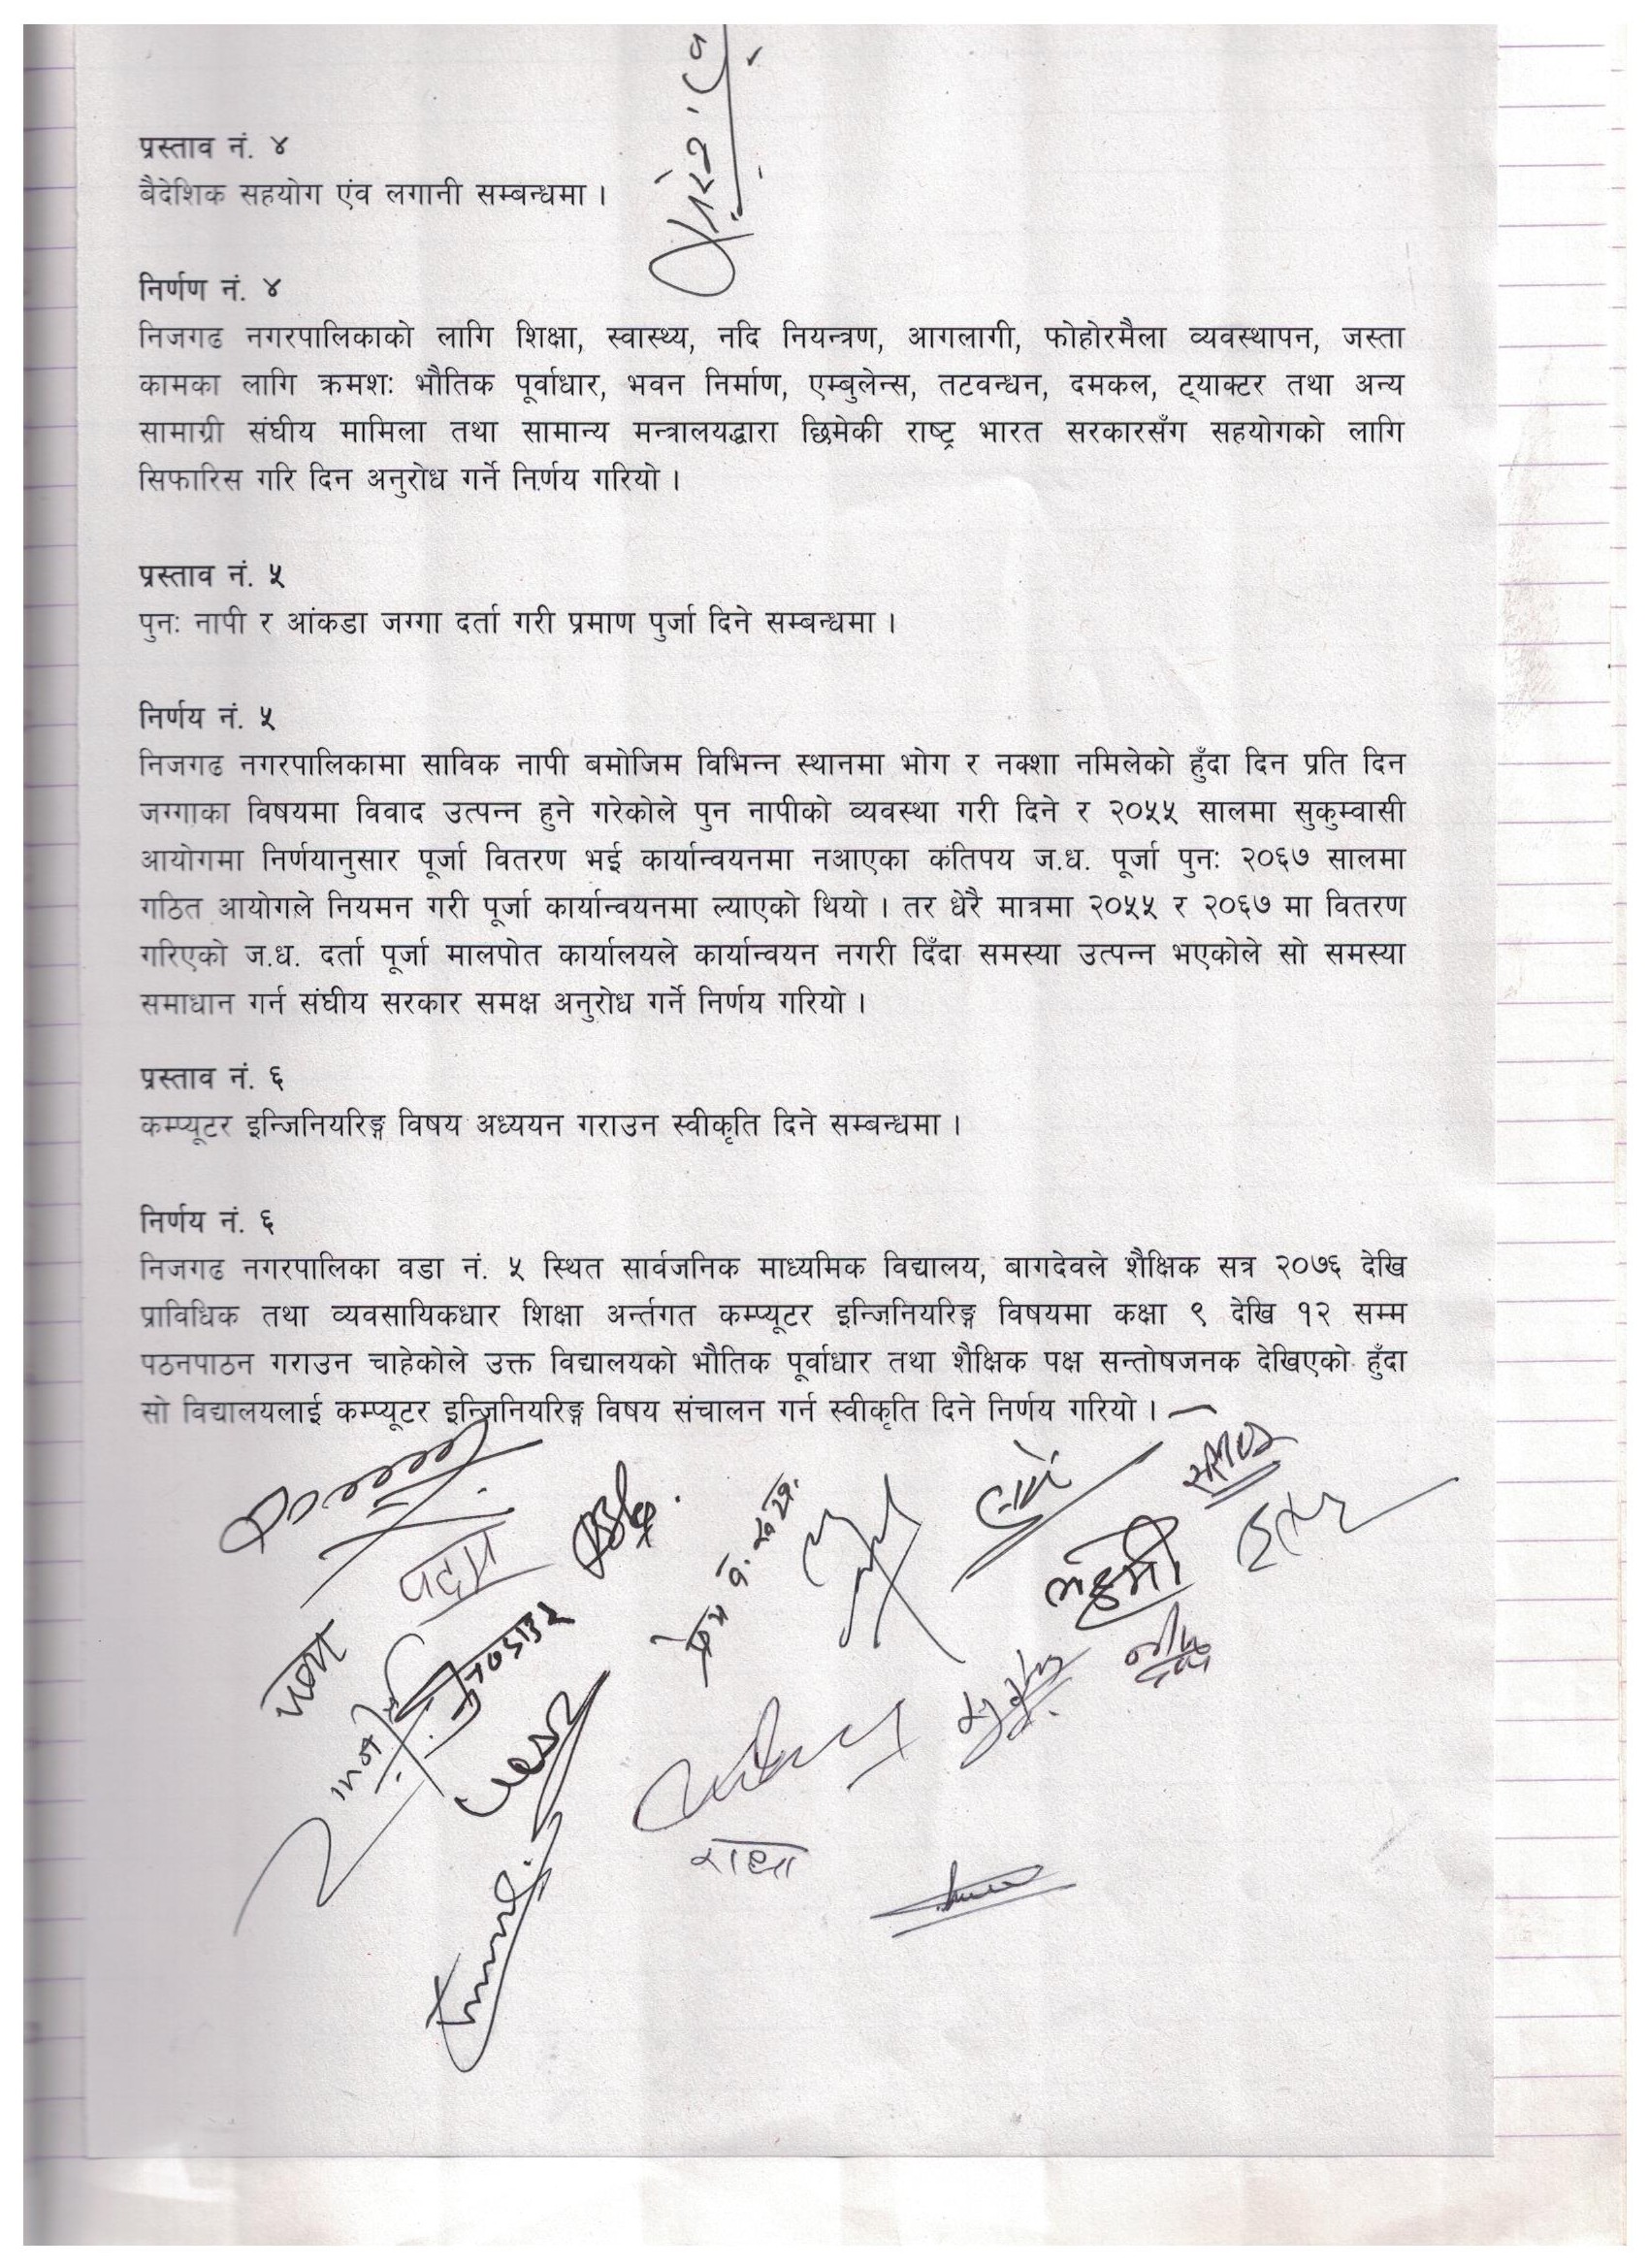 प्रस्ताव नं. ४
बैदेशिक सहयोग एंव लगानी सम्बन्धमा ।
निर्णण नं. ४
निजगढ नगरपालिकाको लागि शिक्षा, स्वास्थ्य, नदि नियन्त्रण, आगलागी, फोहोरमैला व्यवस्थापन, जस्ता
कामका लागि क्रमशः भौतिक पूर्वाधार, भवन निर्माण, एम्बुलेन्स, तटवन्धन, दमकल, ट्याक्टर तथा अन्य
सामाग्री संघीय मामिला तथा सामान्य मन्त्रालयद्धारा छिमेकी राष्ट्र भारत सरकारसँग सहयोगको लागि
सिफारिस गरि दिन अनुरोध गर्ने निर्णय गरियो ।
प्रस्ताव नं. ५
पुनः नापी र आंकडा जग्गा दर्ता गरी प्रमाण पुर्जा दिने सम्बन्धमा ।
निर्णय नं. ५
निजगढ नगरपालिकामा साविक नापी बमोजिम विभिन्न स्थानमा भोग र नक्शा नमिलेको हुँदा दिन प्रति दिन
जग्गाका विषयमा विवाद उत्पन्न हुने गरेकोले पुन नापीको व्यवस्था गरी दिने र २०५५ सालमा सुकुम्वासी
आयोगमा निर्णयानुसार पूर्जा वितरण भई कार्यान्वयनमा नआएका कंतिपय ज.ध. पूर्जा पुनः २०६७ सालमा
गठित आयोगले नियमन गरी पूर्जा कार्यान्वयनमा ल्याएको थियो । तर धेरै मात्रमा २०५५ र २०६७ मा वितरण
गरिएको ज.ध. दर्ता पूर्जा मालपोत कार्यालयले कार्यान्वयन नगरी दिँदा समस्या उत्पन्न भएकोले सो समस्या
समाधान गर्न संघीय सरकार समक्ष अनुरोध गर्ने निर्णय गरियो ।
प्रस्ताव नं. ६
कम्प्यूटर इन्जिनियरिङ्ग विषय अध्ययन गराउन स्वीकृति दिने सम्बन्धमा ।
निर्णय नं. ६
निजगढ नगरपालिका वडा नं. ५ स्थित सार्वजनिक माध्यमिक विद्यालय, बागदेवले शैक्षिक सत्र २०७६ देखि
प्राविधिक तथा व्यवसायिकधार शिक्षा अर्न्तगत कम्प्यूटर इन्जिनियरिङ्ग विषयमा कक्षा ९ देखि १२ सम्म
पठनपाठन गराउन चाहेकोले उक्त विद्यालयको भौतिक पूर्वाधार तथा शैक्षिक पक्ष सन्तोषजनक देखिएको हुँदा
सो विद्यालयलाई कम्प्यूटर इन्जिनियरिङ्ग विषय संचालन गर्न स्वीकृति दिने निर्णय गरियो ।
पदम
लक्ष्मी
राधा